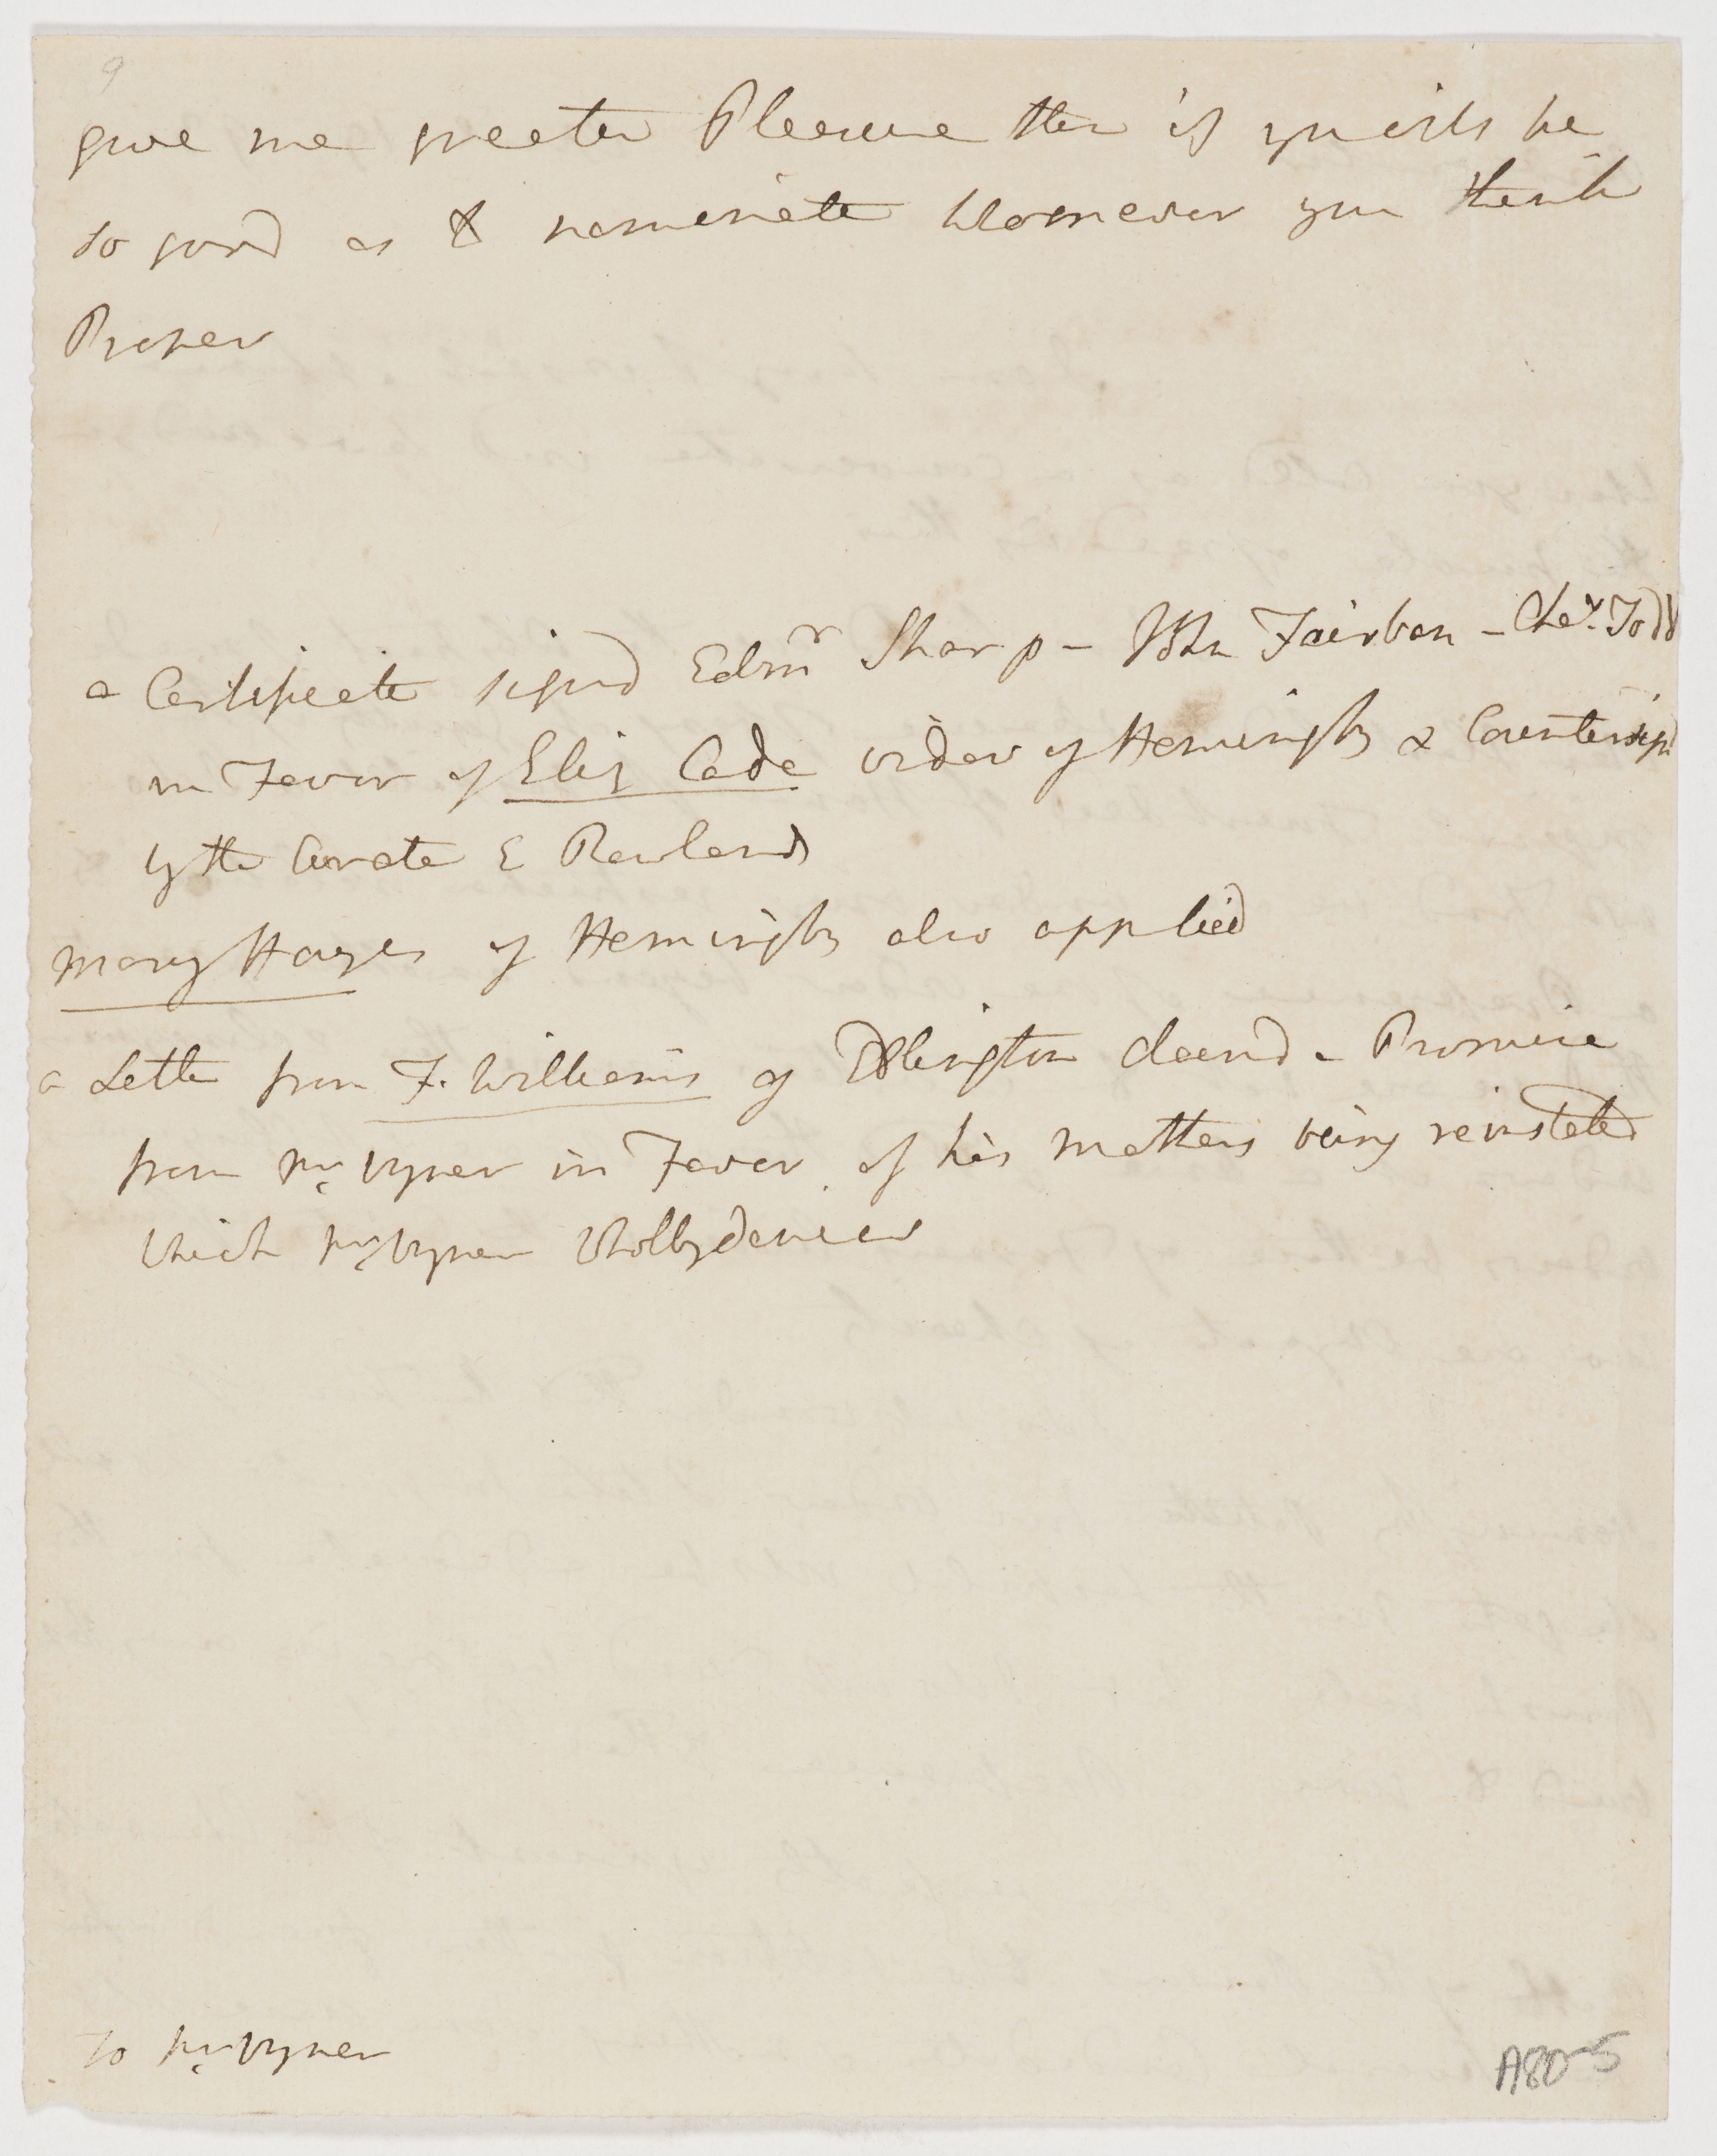 9
give me greater Pleasure then if you will be
so good as to nominate Whomever you think
Proper
a Certificate signd Edmr Sharp - John Fairbon - Chas. Todd
in Favor of Eliz Cade widow of Hemingby & Countersignd
by the Curate E Rowland
Mary Hayes of Hemingby also applied
a Letter from F. Williams of Edlington claims a Promise
from Mr Vyner in Favor of his mothers being reinstated
which Mr Vyner whollydenies
To Mr Vyner
A80-5